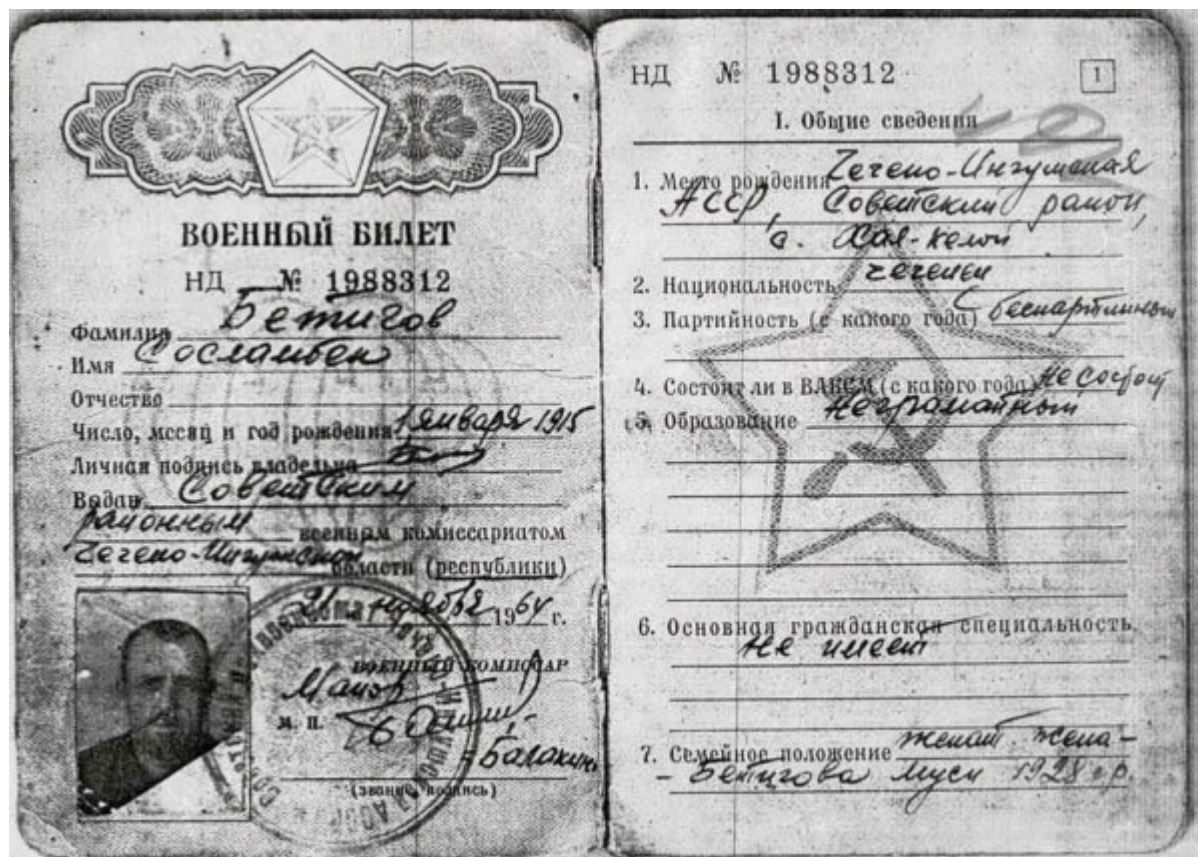 ВОЕННЫЙ БИЛЕТ
НД № 1988312
Фамилия Бетигов
Имя Сосламбек
Отчество
Число, месяц и год рождения 1 января 1915
Личная подпись владельца
Выдан Советским
районным военным комиссариатом
Чечено-Ингушской области (республики)
21 ноября 1964 г.
ВОЕННЫЙ КОМИССАР
Майор
М. П.
Балакин
(звание, подпись)
НД № 1988312
1
I. Общие сведения
1. Место рождения Чечено-Ингушская
АССР, Советский район,
с. Хал-Келой
2. Национальность чеченец
3. Партийность (с какого года) беспартийный
4. Состоит ли в ВЛКСМ (с какого года) Не состоит
5. Образование Неграмотный
6. Основная гражданская специальность
Не имеет
7. Семейное положение женат. жена -
- Бетигова Муси 1928 г.р.